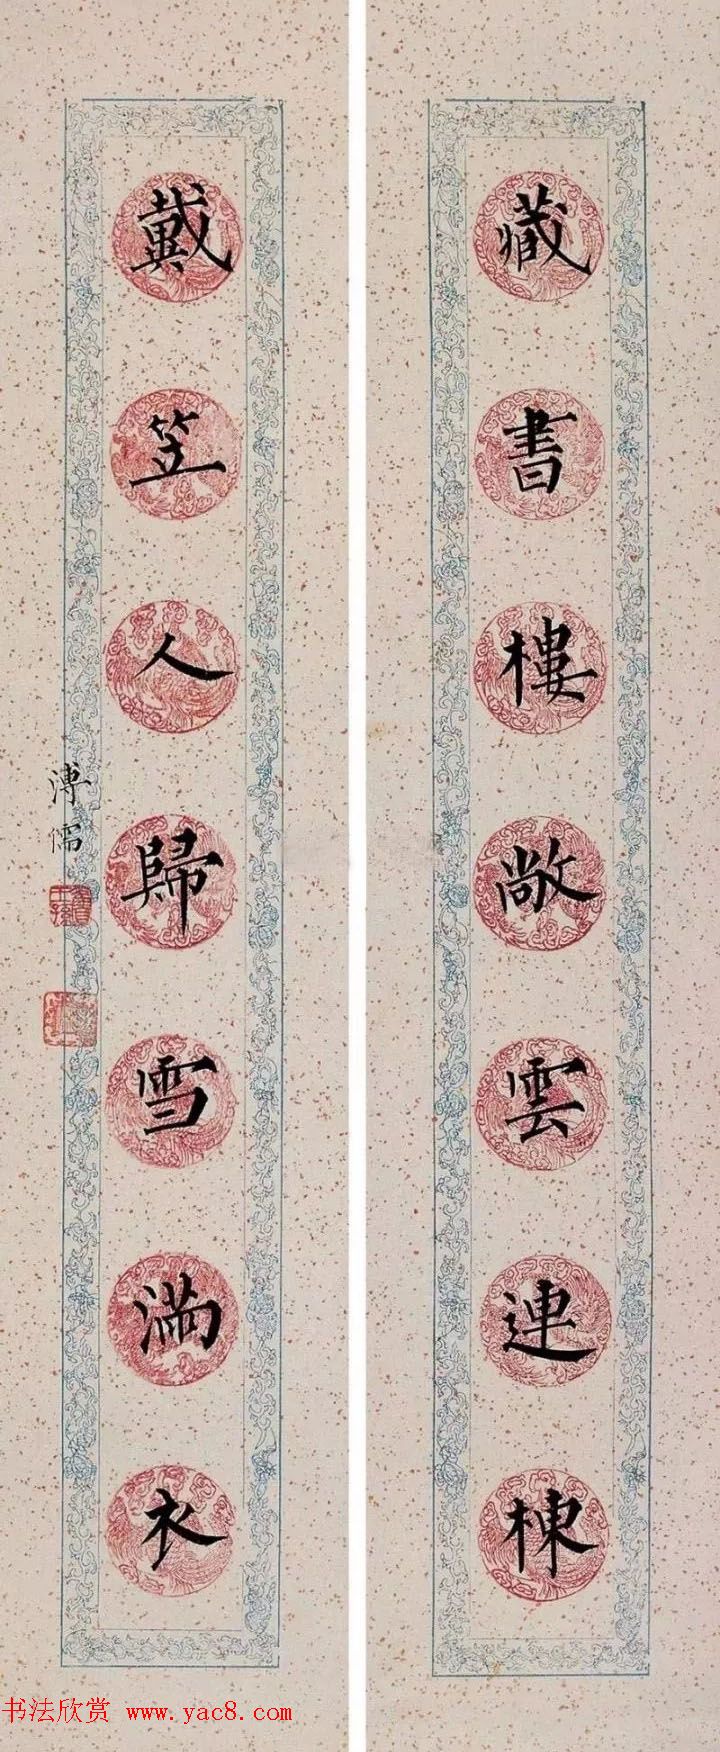 藏書樓敞雲連棟
戴笠人歸雪滿衣
溥儒
书法欣赏 www.yac8.com